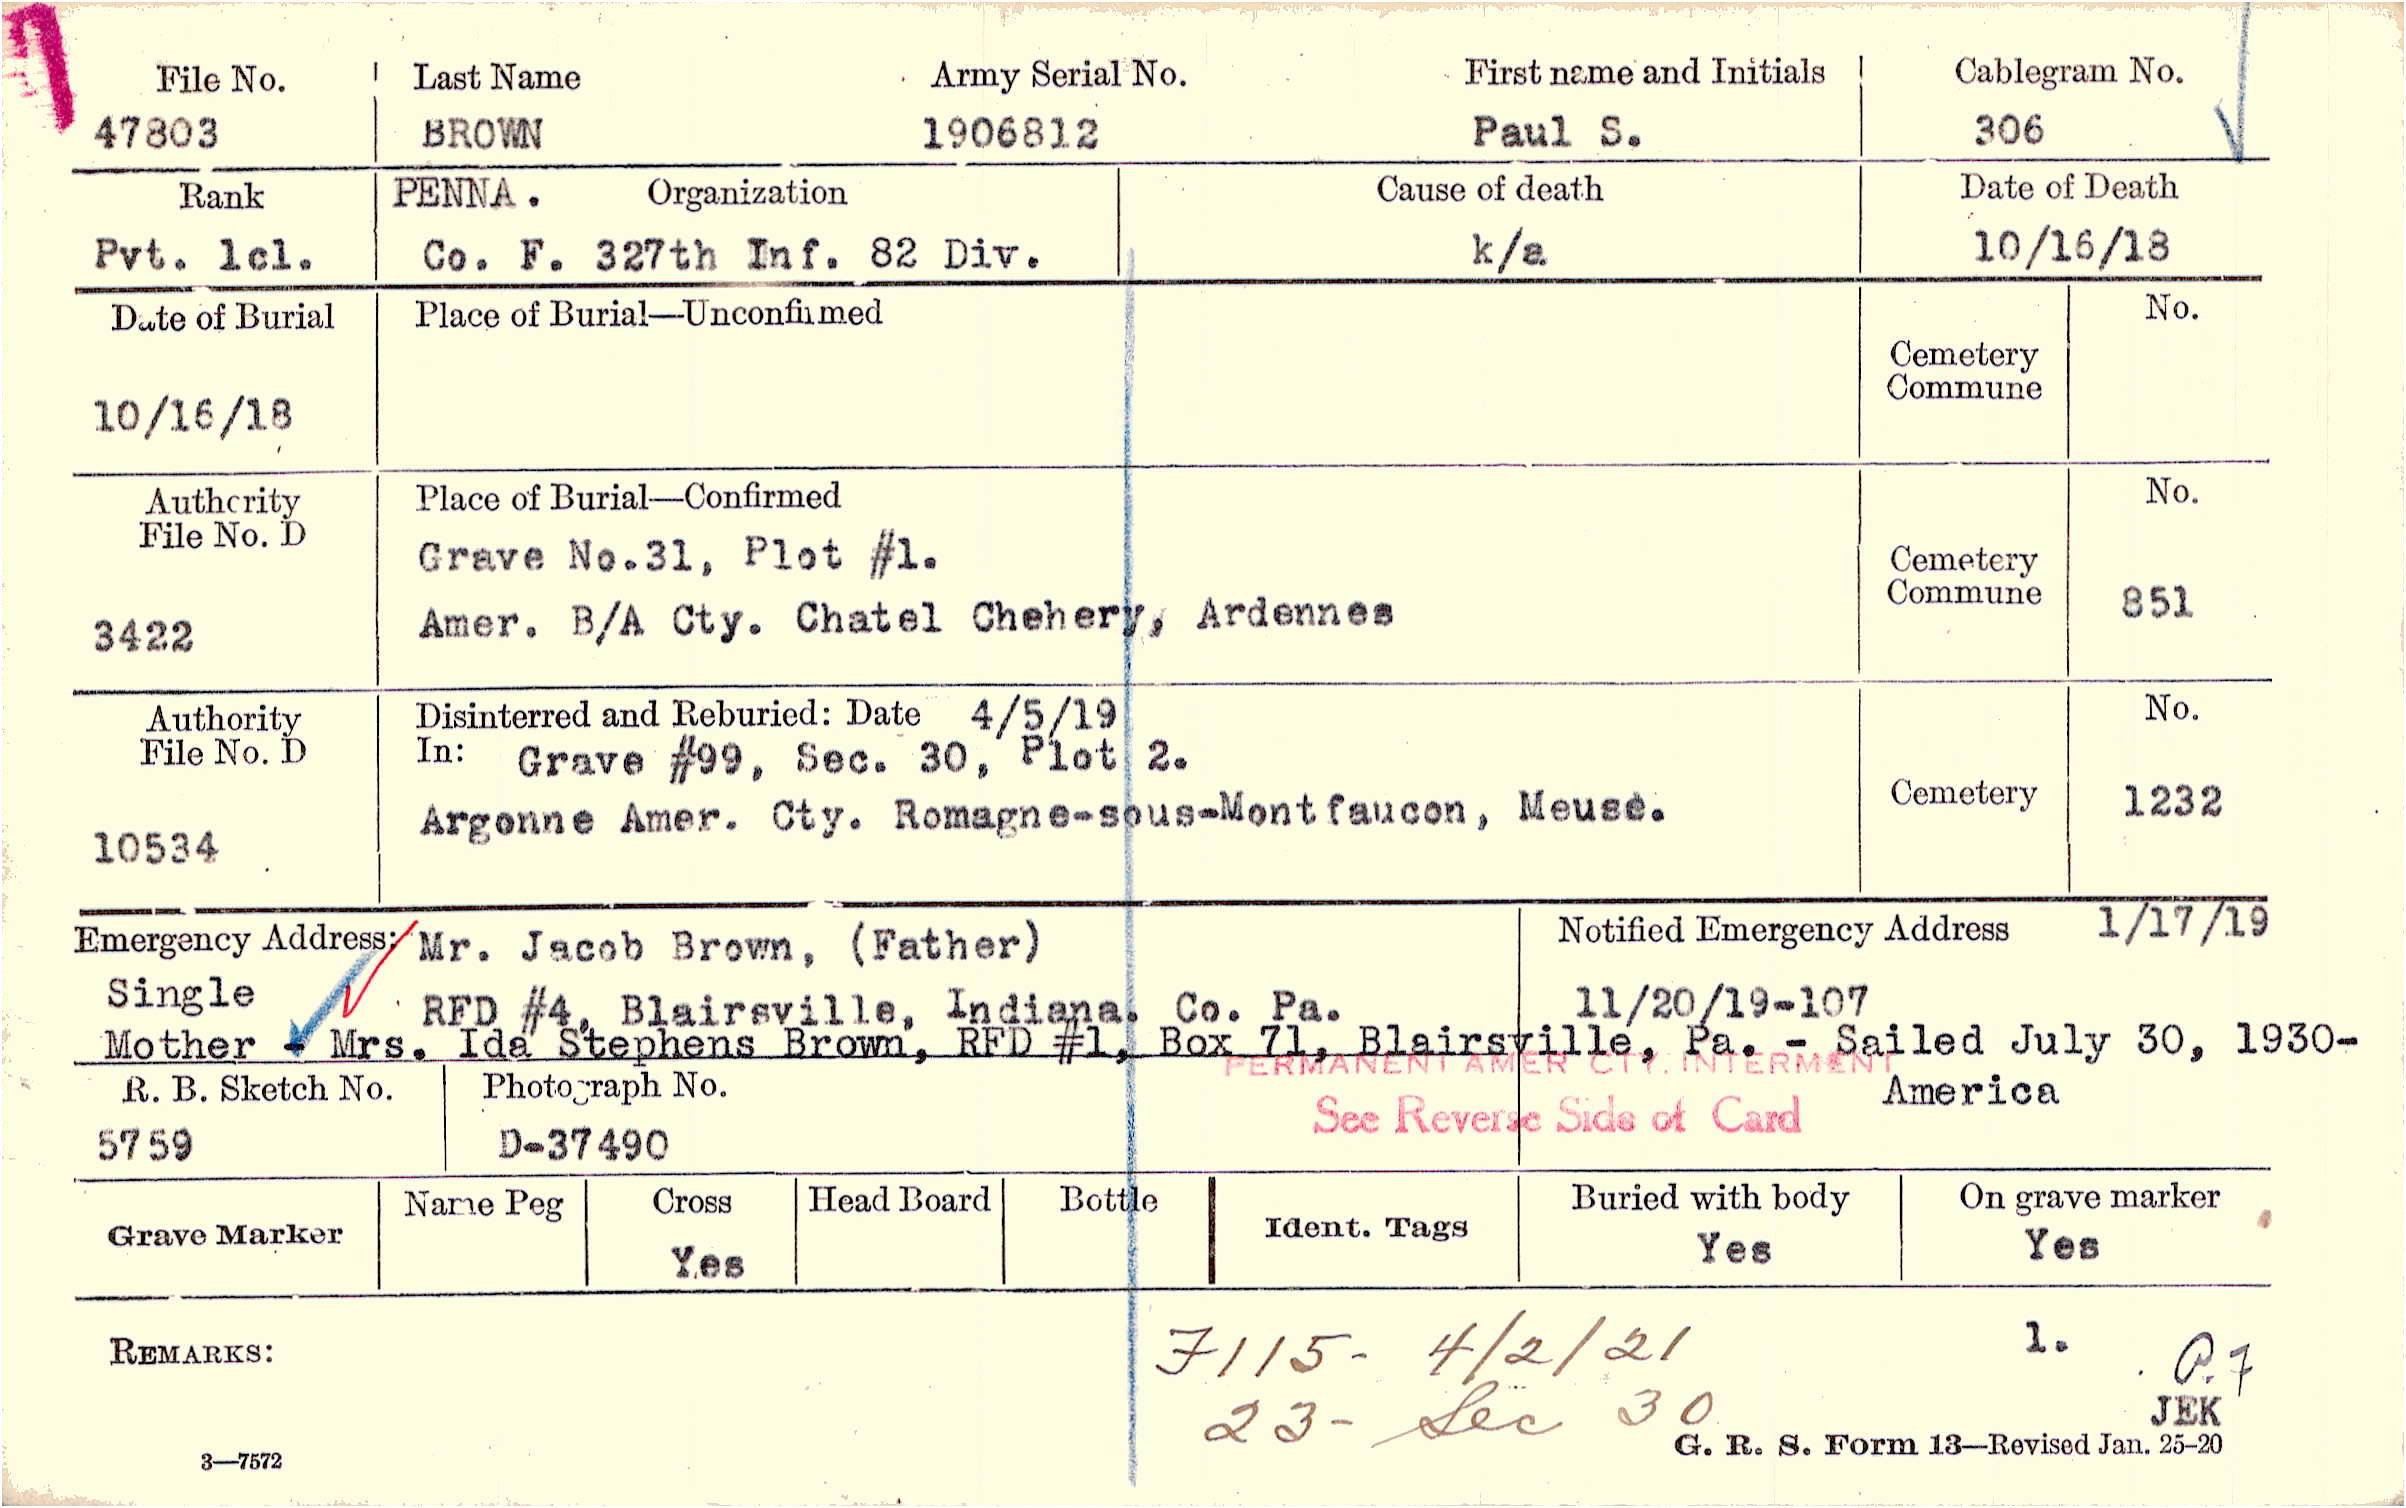 File No. Last Name Army Serial No. First name and Initials Cablegram No.
47803 BROWN 1906812 Paul S. 306
Rank PENNA. Organization Cause of death Date of Death
Pvt. 1cl. Co. F. 327th Inf. 82 Div. k/a 10/16/18
Date of Burial Place of Burial—Unconfirmed No.
Cemetery
Commune
10/16/18
Authority Place of Burial—Confirmed No.
File No. D
Grave No.31, Plot #1.
Cemetery
Commune 851
3422 Amer. B/A Cty. Chatel Chehery, Ardennes
Authority Disinterred and Reburied: Date 4/5/19 No.
File No. D In: Grave #99, Sec. 30, Plot 2.
Cemetery 1232
10534 Argonne Amer. Cty. Romagne-sous-Montfaucon, Meuse.
Emergency Address: Mr. Jacob Brown, (Father) Notified Emergency Address 1/17/19
Single RFD #4, Blairsville, Indiana. Co. Pa. 11/20/19-107
Mother - Mrs. Ida Stephens Brown, RFD #1, Box 71, Blairsville, Pa. - Sailed July 30, 1930-
PERMANENT AMER CTY. INTERMENT
America
R. B. Sketch No. Photograph No.
See Reverse Side of Card
5759 D-37490
Grave Marker Name Peg Cross Head Board Bottle Ident. Tags Buried with body On grave marker
Yes Yes Yes
REMARKS: 7115- 4/2/21 1.
23- Sec 30
JEK
3—7572 G. R. S. Form 13—Revised Jan. 25-20